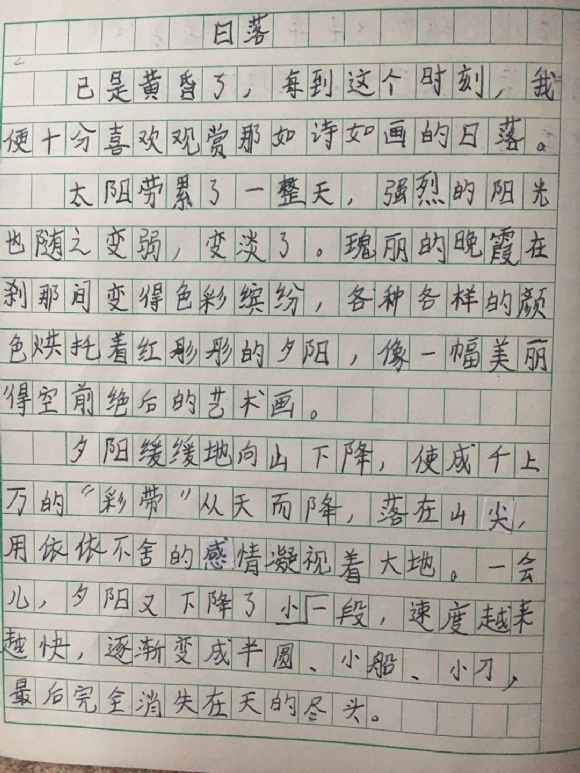 日落
已是黄昏了，每到这个时刻，我
便十分喜欢观赏那如诗如画的日落。
太阳劳累了一整天，强烈的阳光
也随之变弱，变淡了。瑰丽的晚霞在
刹那间变得色彩缤纷，各种各样的颜
色烘托着红彤彤的夕阳，像一幅美丽
得空前绝后的艺术画。
夕阳缓缓地向山下降，使成千上
万的“彩带”从天而降，落在山尖，
用依依不舍的感情凝视着大地。一会
儿，夕阳又下降了小一段，速度越来
越快，逐渐变成半圆、小船、小刀，
最后完全消失在天的尽头。